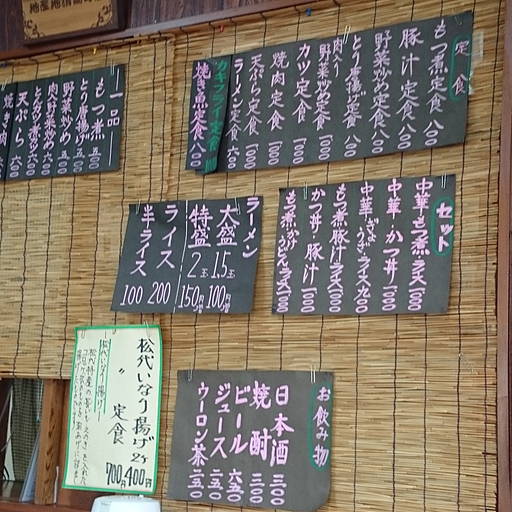 定食
もつ煮定食 八〇〇
豚汁定食 八〇〇
野菜炒め定食 八〇〇
とり唐揚げ定食 八〇〇
肉入り野菜炒め定食 九〇〇
カツ定食 一〇〇〇
焼肉定食 一〇〇〇
天ぷら定食 一〇〇〇
ラーメン定食
カキフライ定食
焼き魚定食 八〇〇
一品
もつ煮 五〇〇
とり唐揚げ 五〇〇
野菜炒め 五〇〇
肉入野菜炒め 六〇〇
とんかつ
天ぷら
焼き肉
セット
中華・もつ煮ライス 一〇〇〇
中華・かつ丼 一〇〇〇
中華・ぎょうざ・ライス
もつ煮豚汁ライス 一〇〇〇
かつ丼・豚汁 一〇〇〇
もつ煮かけうどんライス 一〇〇〇
ラーメン
大盛 1.5玉 100円増
特盛 2玉 150円増
ライス 200
半ライス 100
お飲み物
日本酒 三〇〇
焼酎 三〇〇
ビール 六五〇
ジュース 二五〇
ウーロン茶 二五〇
松代いなり揚げ 2ヶ 400円
〃 定食 700円
松代いなり揚げ